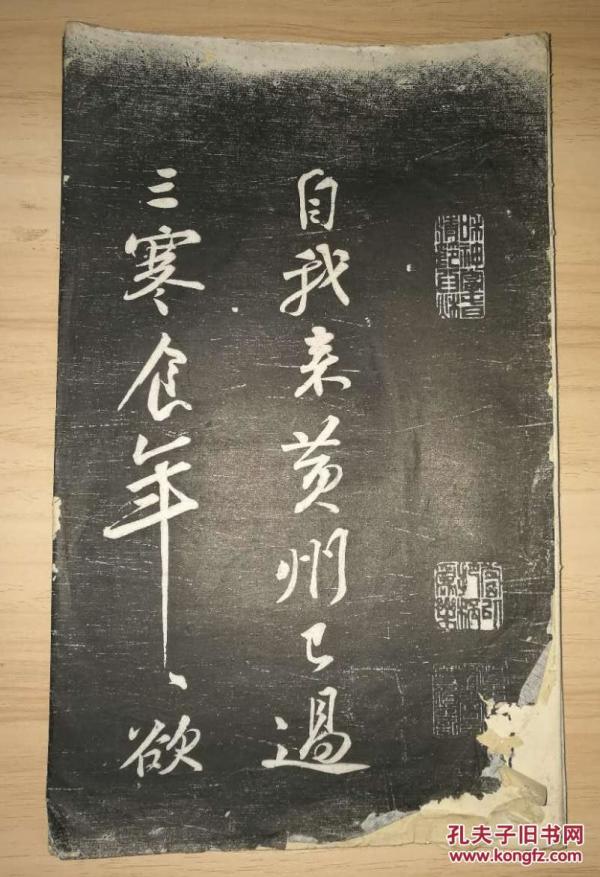 自我来黄州已過
三寒食年ヽ欲
孔夫子旧书网
www.kongfz.com